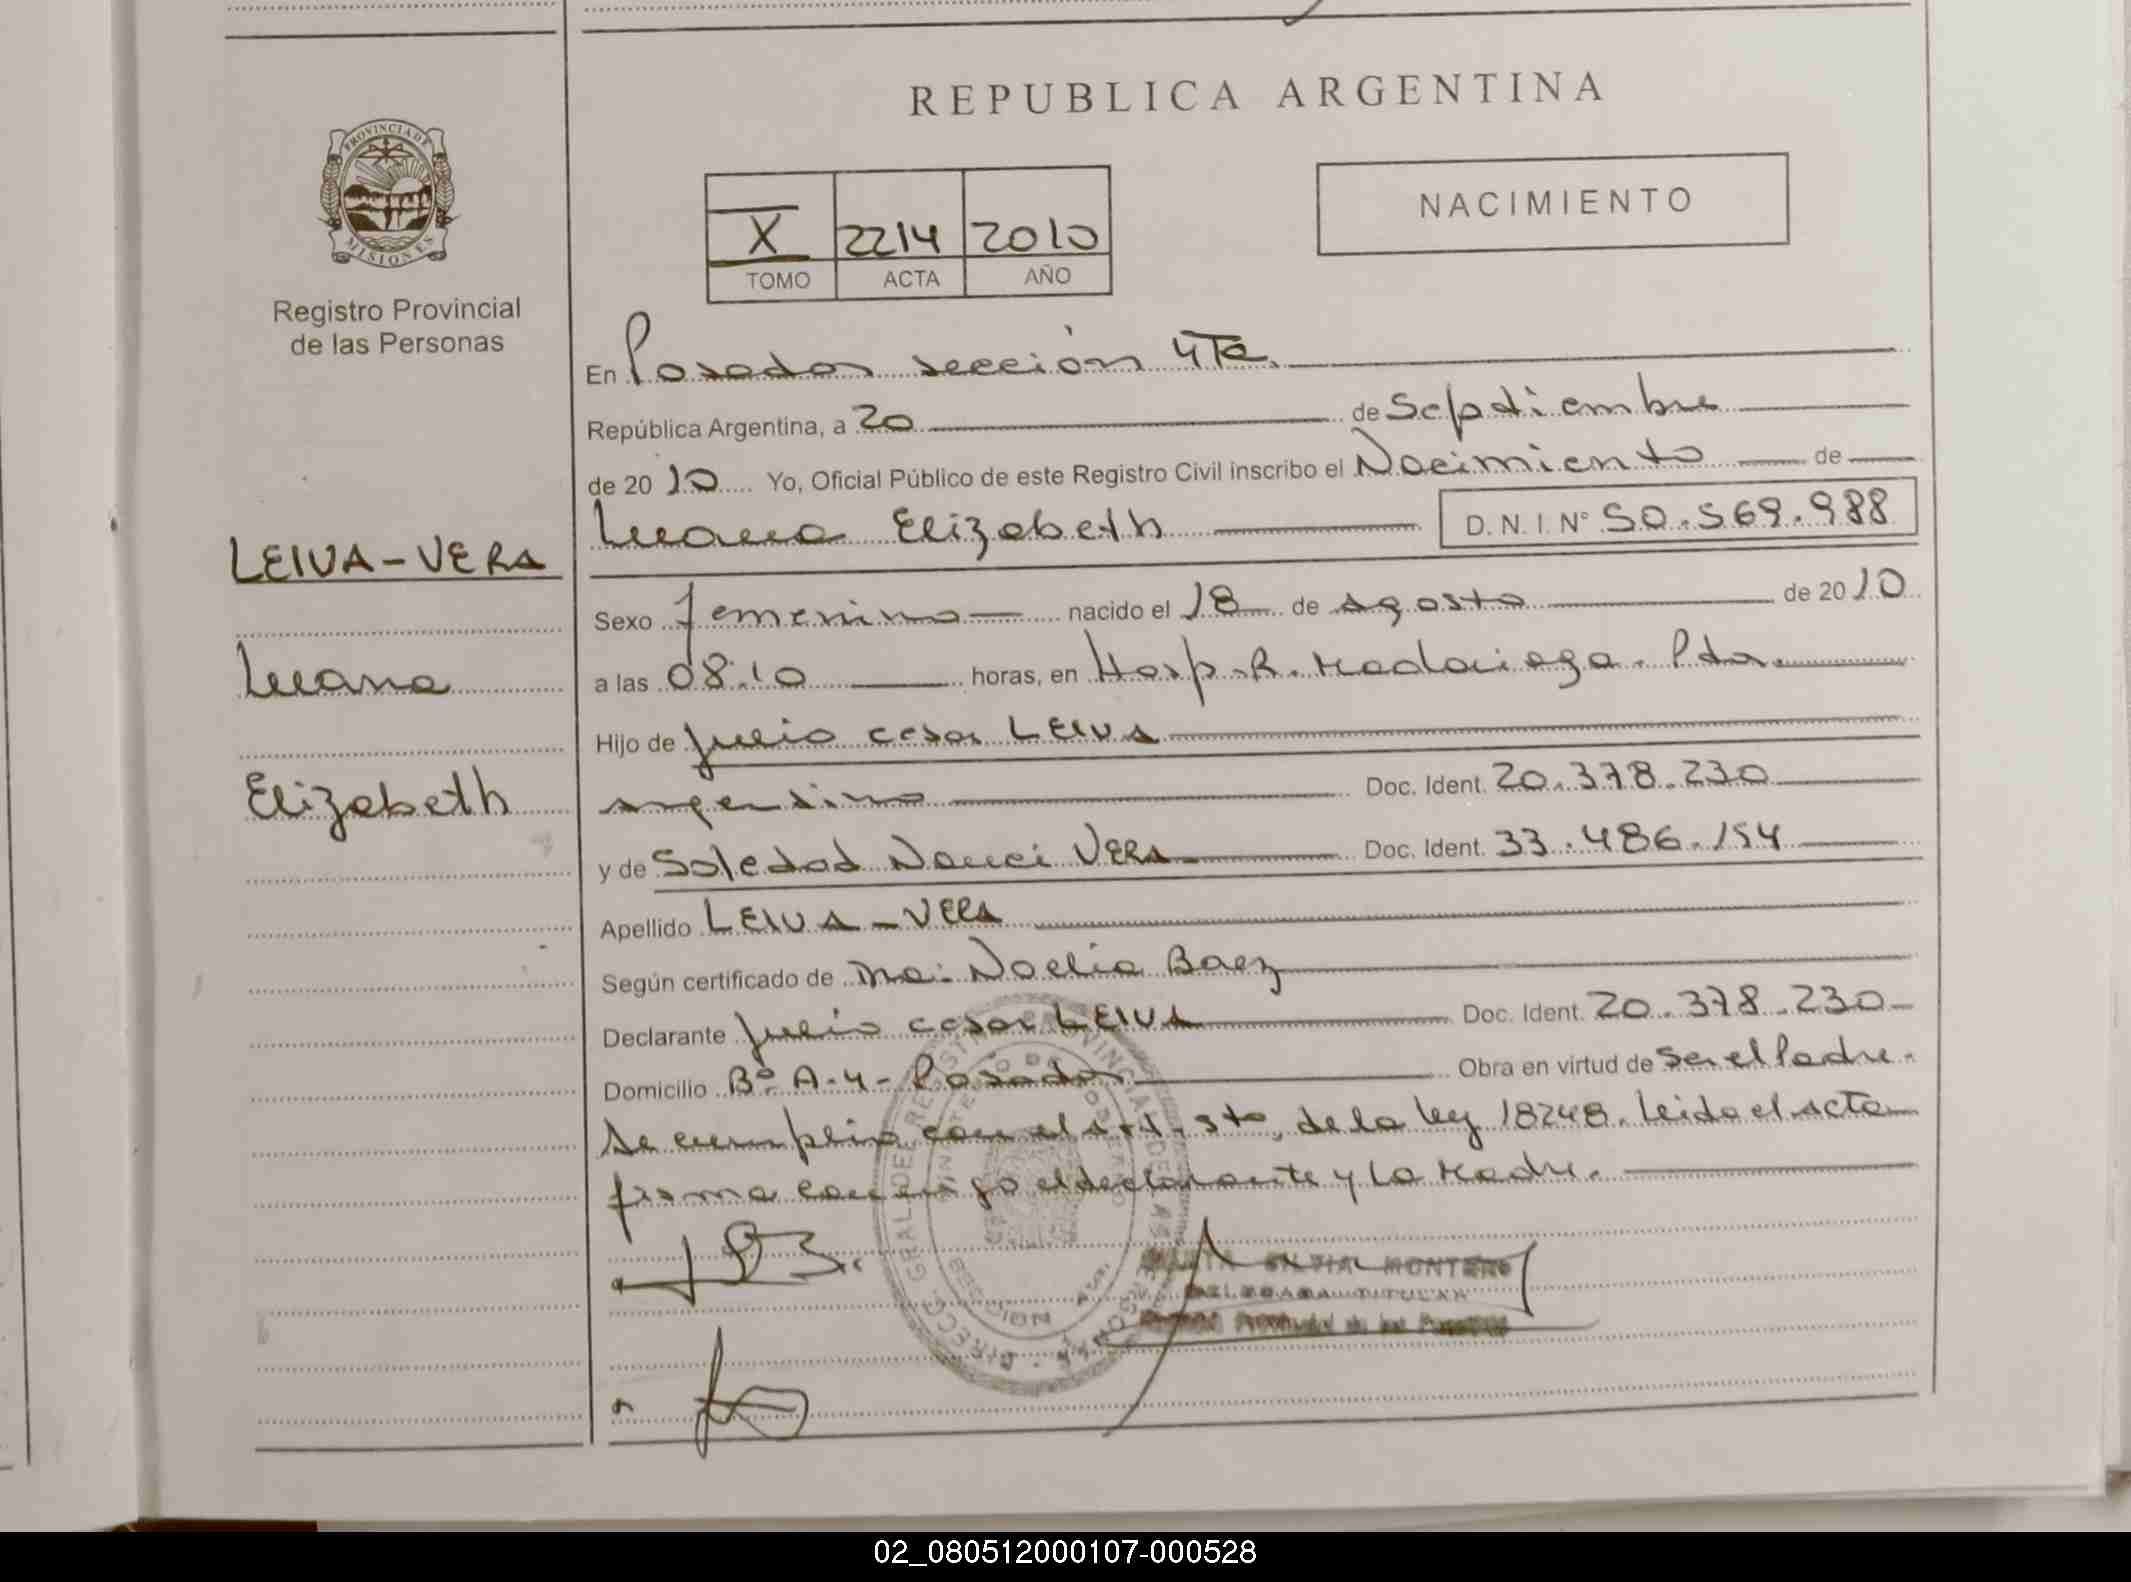 REPUBLICA ARGENTINA
PROVINCIA DE
MISIONES
Registro Provincial
de las Personas
NACIMIENTO
X 2214 2010
TOMO ACTA AÑO
En Posadas sección 4ta.
República Argentina, a 20 de Septiembre
de 2010 Yo, Oficial Público de este Registro Civil inscribo el Nacimiento de
Luana Elizabeth D.N.I. Nº 50.569.988
LEIVA-VERA
Luana
Elizabeth
Sexo femenino nacido el 18 de agosto de 2010
a las 08:10 horas, en Hosp. R. Madariaga. Pdas.
Hijo de Julio cesar LEIVA
argentino Doc. Ident. 20.378.230
y de Soledad Nanci VERA Doc. Ident. 33.486.154
Apellido LEIVA-VERA
Según certificado de Dra: Noelia Baez
Declarante Julio cesar LEIVA Doc. Ident. 20.378.230
Domicilio Bº A-4-Posadas Obra en virtud de Ser el Padre.
Se cumplio con el art. 5to, de la ley 18248. Leida el acta
firma conmigo el declarante y la Madre.
MONTERO
Provincial de las Personas
02_080512000107-000528